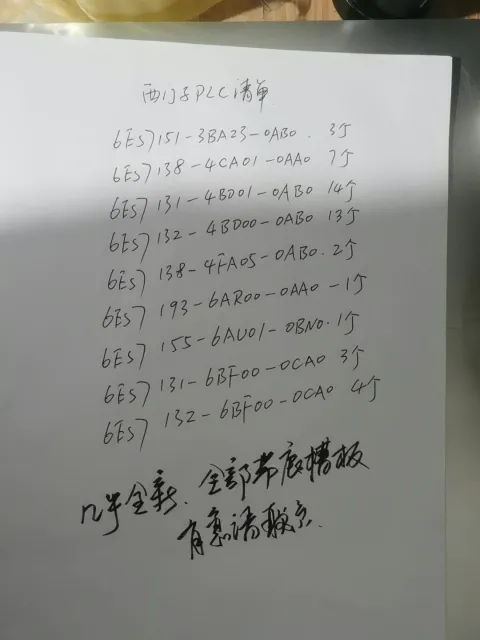 西门子PLC清单
6ES7151-3BA23-0AB0. 3个
6ES7138-4CA01-0AA0 7个
6ES7 131-4BD01-0AB0 14个
6ES7 132-4BD00-0AB0 13个
6ES7 138-4FA05-0AB0. 2个
6ES7 193-6AR00-0AA0 -1个
6ES7 155-6AU01-0BN0. 1个
6ES7 131-6BF00-0CA0 3个
6ES7 132-6BF00-0CA0 4个
几乎全新、全部带底槽板
有意请联系.